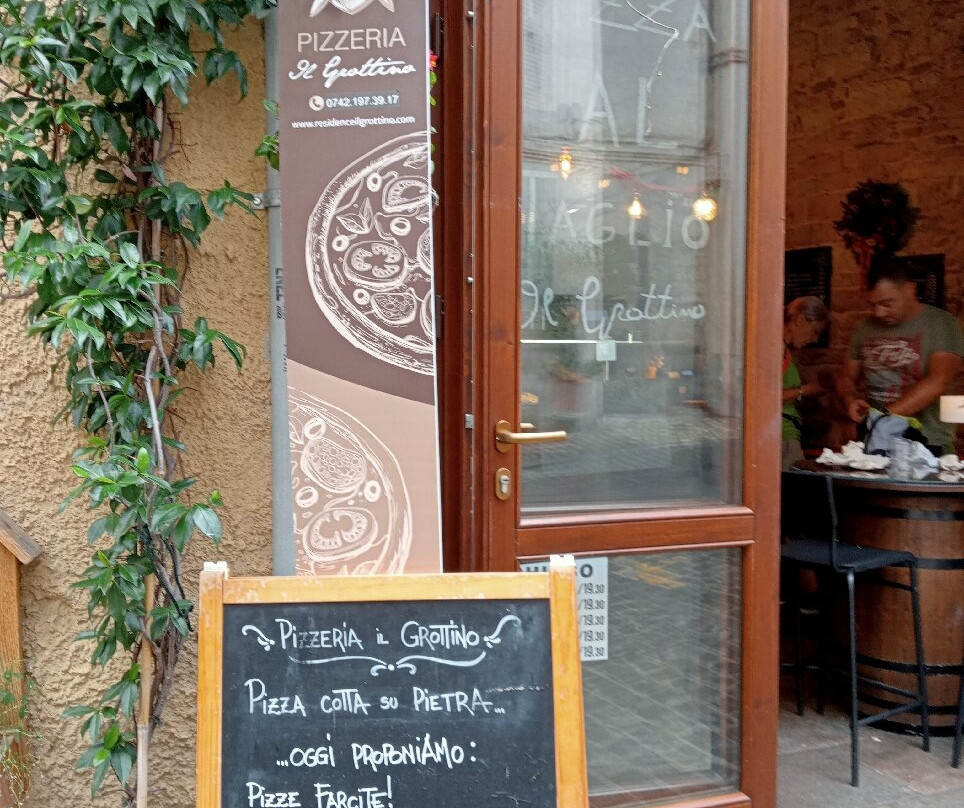 PIZZERIA
Il Grottino
0742.197.39.17
www.residenceilgrottino.com
AL
TAGLIO
Il Grottino
/19.30
/19.30
/19.30
/19.30
/19.30
PIZZERIA IL GROTTINO
PIZZA COTTA SU PIETRA...
...OGGI PROPONIAMO:
PIZZE FARCITE!